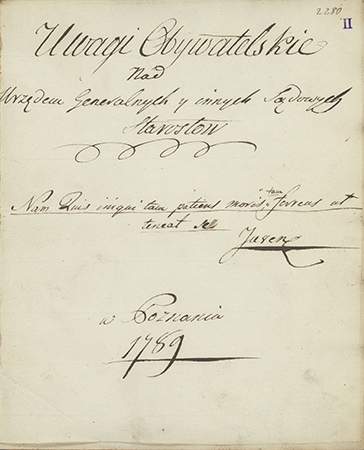 2280
II
Uwagi Obywatelskie
Nad
Urzędem Generalnych y innych Sądowych
Starostow
tam
Nam Quis iniqui tam patiens moris, ferreus ut
teneat se
Juven
w Poznaniu
1789